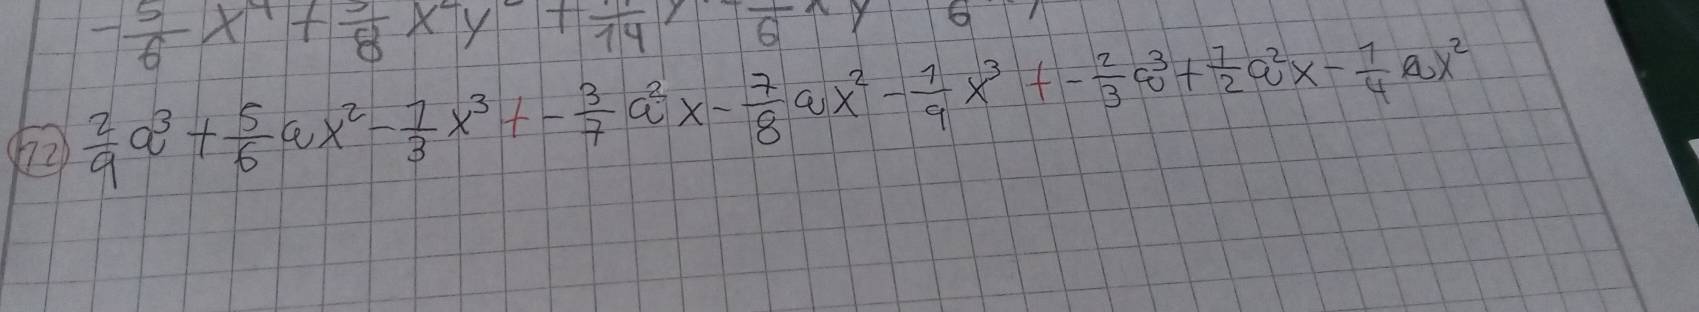 - 5/6 x⁴ + 3/8 x²y² + /14 y - /6 xy 6
12) 2/9 a³ + 5/6 ax² - 1/3 x³ + - 3/7 a²x - 7/8 ax² - 1/9 x³ + - 2/3 a³ + 1/2 a²x - 1/4 ax²